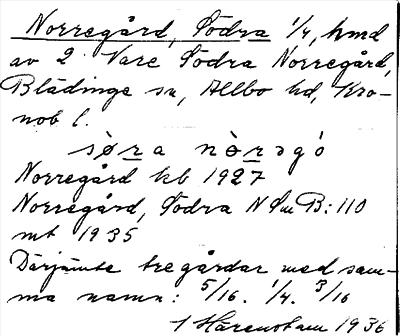 Norregård, Södra 1/4, hmd
av 2 Vare Södra Norregård,
Blädinge sn, Allbo hd, Kro-
nob l.
sø̀ra nòrəgó
Norregård kb 1927
Norregård, Södra N Sm B: 110
mt 1935
Därjämte tre gårdar med sam-
ma namn: 5/16. 1/4. 3/16
1936